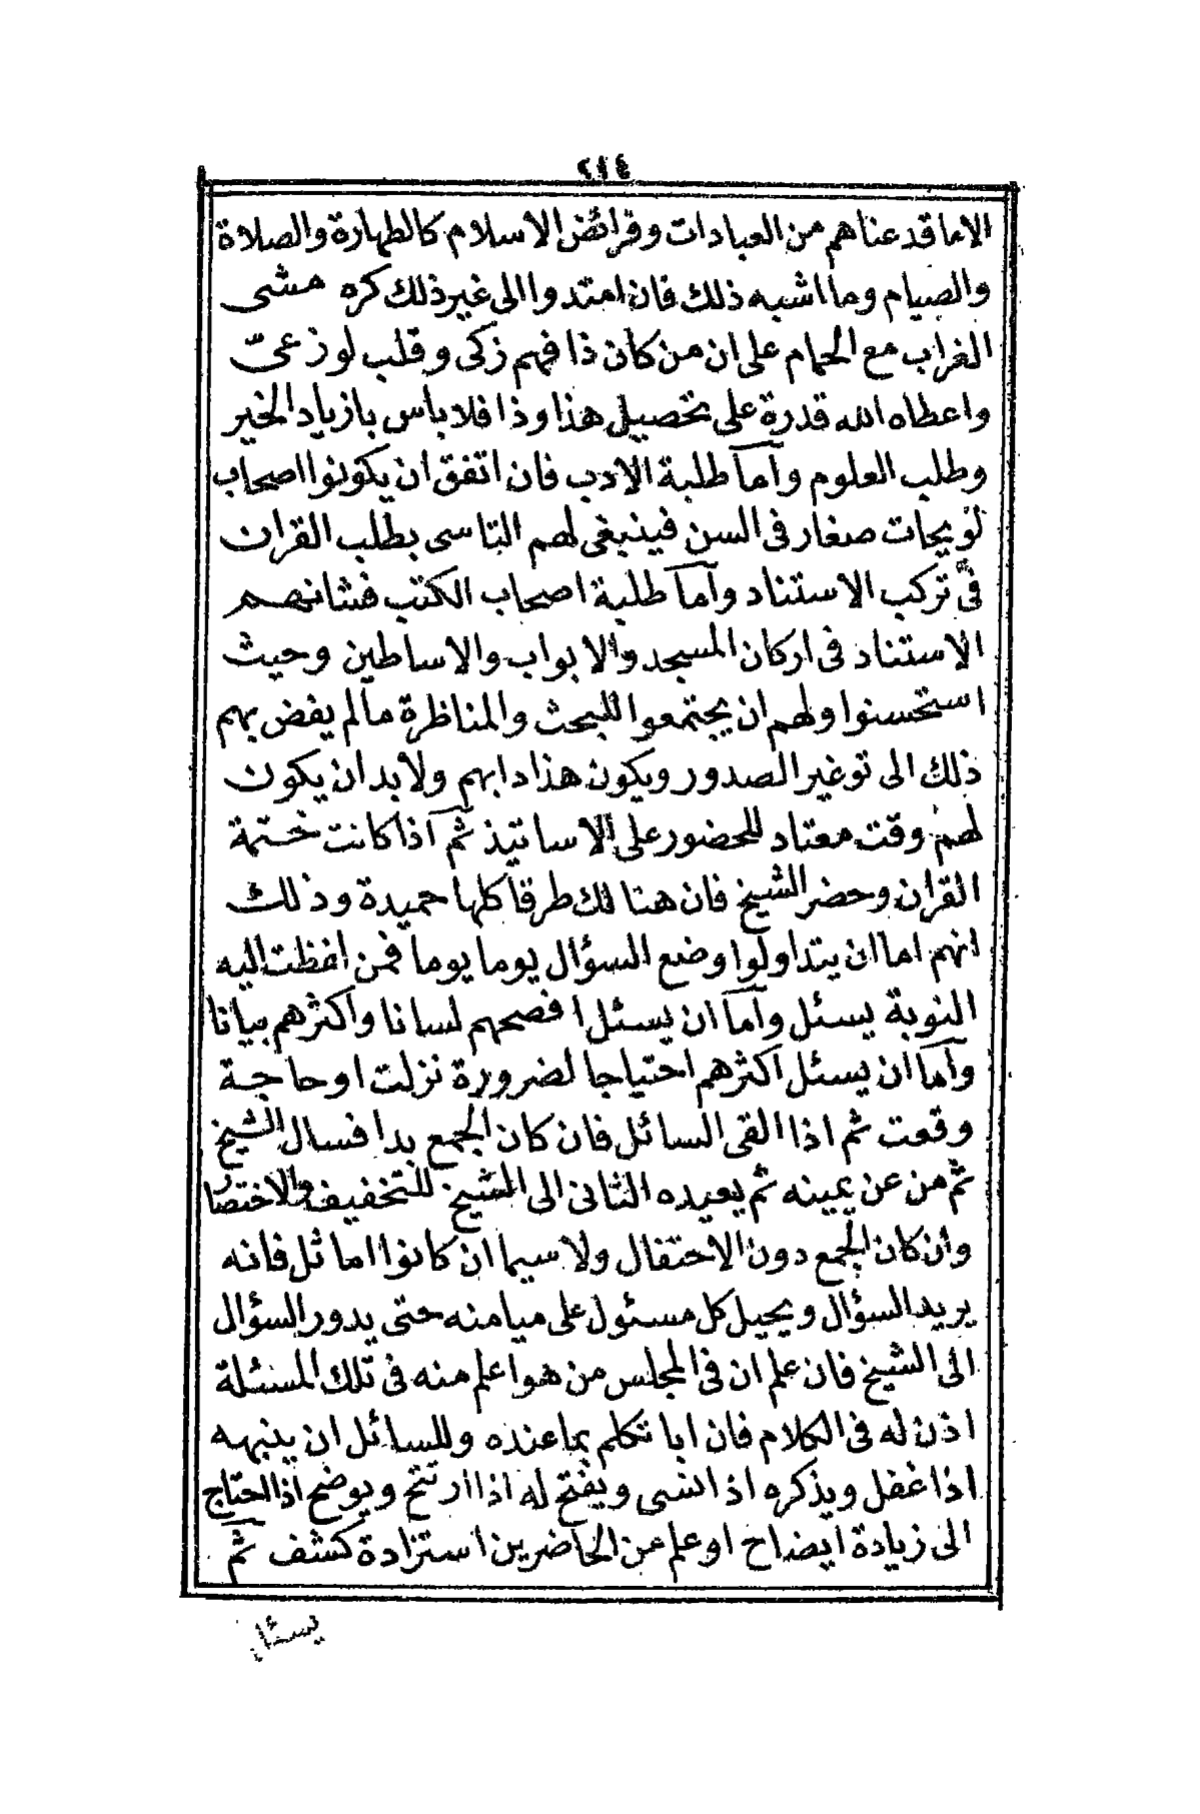 ٢١٤
الاماقد عناهم من العبادات وفرائض الاسلام كالطهارة والصلاة
والصيام وما اشبه ذلك فان امتدوا الى غير ذلك كره مشى
الغراب مع الحمام على ان من كان ذا فهم زكى وقلب لوزعىّ
واعطاه الله قدرة على تحصيل هذا وذا فلا باس بازياد الخير
وطلب العلوم وآما طلبة الادب فان اتفق ان يكونوا اصحاب
لويحات صغار فى السن فينبغى لهم التاسى بطلب القران
فى تركب الاستناد وآما طلبة اصحاب الكتب فشانهم
الاستناد فى اركان المسجد والابواب والاساطين وحيث
استحسنوا ولهم ان يجتمعوا للبحث والمناظرة مالم يفض بهم
ذلك الى توغير الصدور ويكون هذا دابهم ولابد ان يكون
لهم وقت معتاد للحضور على الاساتيذ ثم آذا كانت ختمة
القران وحضر الشيخ فان هنالك طرقا كلها حميدة وذلك
انهم اما ان يتداولوا وضع السؤال يوما يوما فمن افظت اليه
النوبة يسئل وآما ان يسئل افصحهم لسانا واكثرهم بيانا
وآما ان يسئل اكثرهم احتياجا لضرورة نزلت اوحاجة
وقعت ثم اذا القى السائل فان كان الجمع بدا فسال الشيخ
ثم من عن يمينه ثم يعيده الثانى الى الشيخ للتخفيف والاختصار
وان كان الجمع دون الاحتفال ولا سيما ان كانوا اماثل فانه
يريد السؤال ويحيل كل مسئول على ميامنه حتى يدور السؤال
الى الشيخ فان علم ان فى المجلس من هو اعلم منه فى تلك المسئلة
اذن له فى الكلام فان ابا تكلم بما عنده وللسائل ان ينبهه
اذا غفل ويذكره اذا نسى ويفتح له اذا ارتتج ويوضح اذا احتاج
الى زيادة ايضاح او علم من الحاضرين استزادة كشف ثم
يسئل